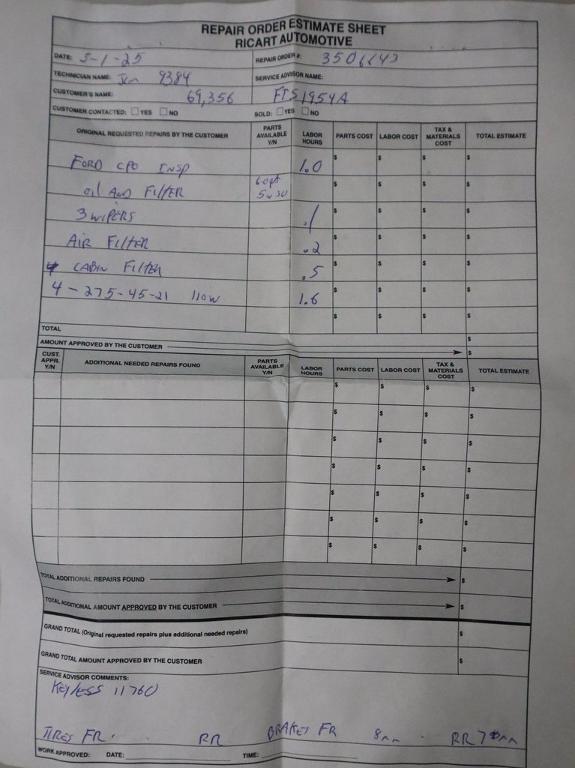 REPAIR ORDER ESTIMATE SHEET
RICART AUTOMOTIVE
DATE: 5-1-25 REPAIR ORDER #:
TECHNICIAN NAME: 9384 SERVICE ADVISOR NAME:
CUSTOMER'S NAME: 69,356 FTS1954A
CUSTOMER CONTACTED: YES NO SOLD: YES NO
ORIGINAL REQUESTED REPAIRS BY THE CUSTOMER PARTS AVAILABLE Y/N LABOR HOURS PARTS COST LABOR COST TAX & MATERIALS COST TOTAL ESTIMATE
FORD CPO INSP 1.0 $ $ $ $
oil AND FilTER 5w30 $ $ $ $
3 wipers .1 $ $ $ $
AIR FilTER .2 $ $ $ $
CABIN FilTER .5 $ $ $ $
4 - 275-45-21 110W 1.6 $ $ $ $
$ $ $ $
TOTAL $
AMOUNT APPROVED BY THE CUSTOMER $
CUST. APPR. Y/N ADDITIONAL NEEDED REPAIRS FOUND PARTS AVAILABLE Y/N LABOR HOURS PARTS COST LABOR COST TAX & MATERIALS COST TOTAL ESTIMATE
$ $ $ $
$ $ $ $
$ $ $ $
$ $ $ $
$ $ $ $
$ $ $ $
$ $ $ $
TOTAL ADDITIONAL REPAIRS FOUND $
TOTAL ADDITIONAL AMOUNT APPROVED BY THE CUSTOMER $
GRAND TOTAL (Original requested repairs plus additional needed repairs) $
GRAND TOTAL AMOUNT APPROVED BY THE CUSTOMER $
SERVICE ADVISOR COMMENTS:
KEYless 11760
TIRES FR. RR BRAKES FR 8mm RR 7mm
WORK APPROVED: DATE: TIME: